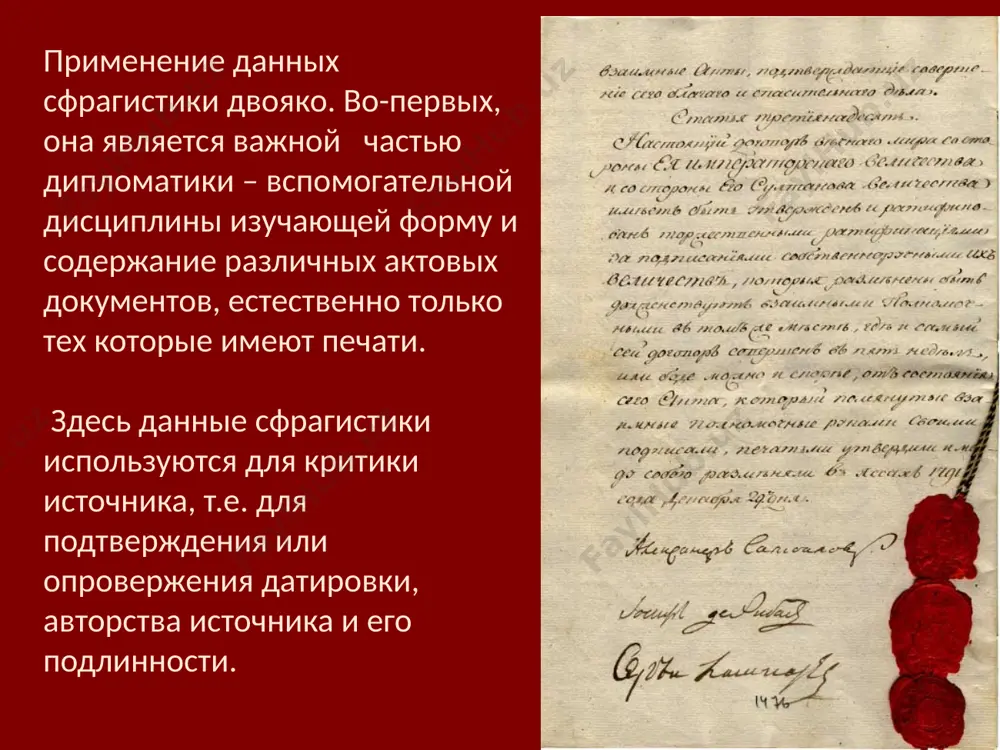 Применение данных
сфрагистики двояко. Во-первых,
она является важной   частью
дипломатики – вспомогательной
дисциплины изучающей форму и
содержание различных актовых
документов, естественно только
тех которые имеют печати.
Здесь данные сфрагистики
используются для критики
источника, т.е. для
подтверждения или
опровержения датировки,
авторства источника и его
подлинности.
взаимные Акты, подтверждающiе соверше-
нiе сего благаго и спасительнаго дѣла.
Статья третiянадесять.
Настоящiй договоръ вѣчнаго мира со сто
роны Ея императорскаго величества
и со стороны Его Султанова величества
имѣетъ быть утвержденъ и ратифико-
ванъ торжественными ратификацiями
за подписанiями собственноручными ихъ
величествъ, которыя размѣнены быть
долженствуютъ взаимными Полномоч-
ными въ томъ же мѣстѣ, гдѣ и самый
сей договоръ совершенъ въ пять недѣль,
или буде можно и скорѣе, отъ состоянiя
сего Акта, который помянутые вза
имные полномочные руками своими
подписали, печатьми утвердили и ме
ду собою размѣняли въ Яссахъ 1791
года Декабря 29 дня.
Александръ Самойловъ
Iосифъ де Рибасъ
Сергѣй Лашкаревъ
1476